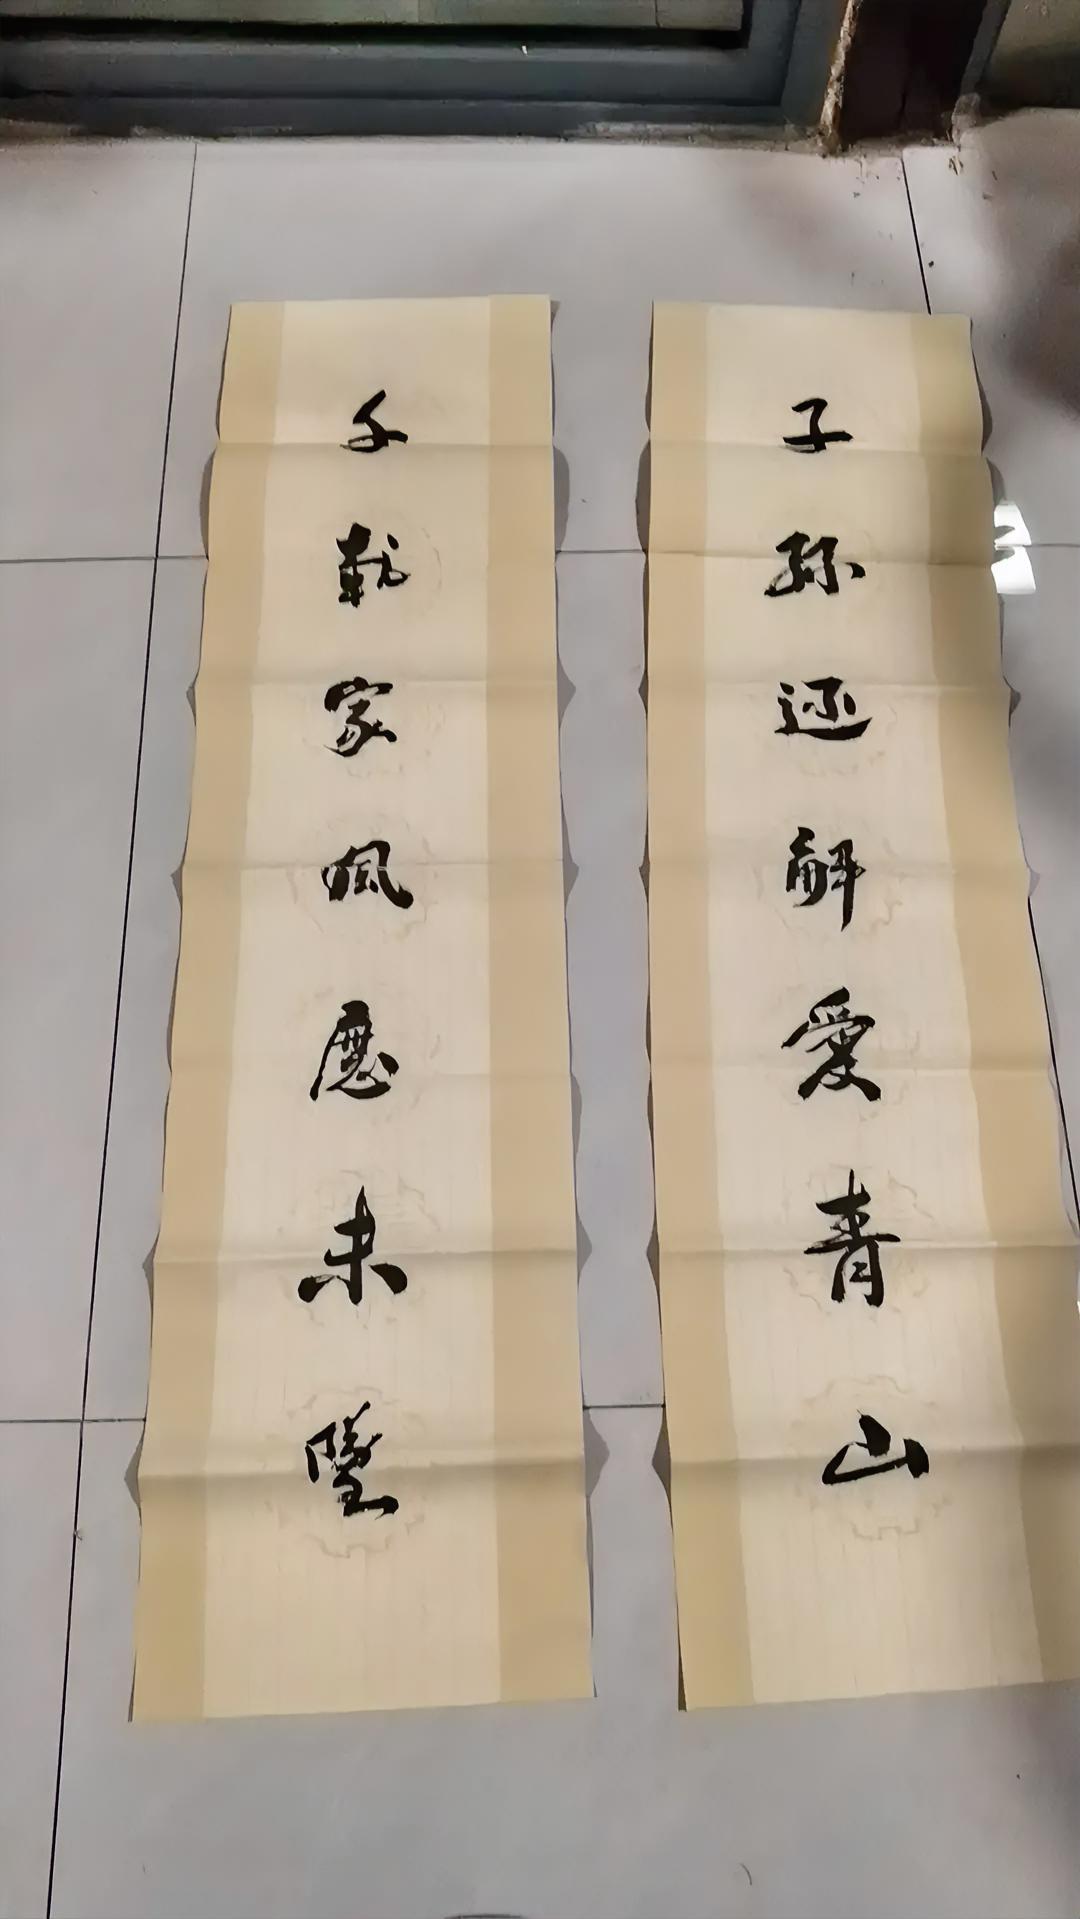 千載家風應未墜
子孫还解愛青山